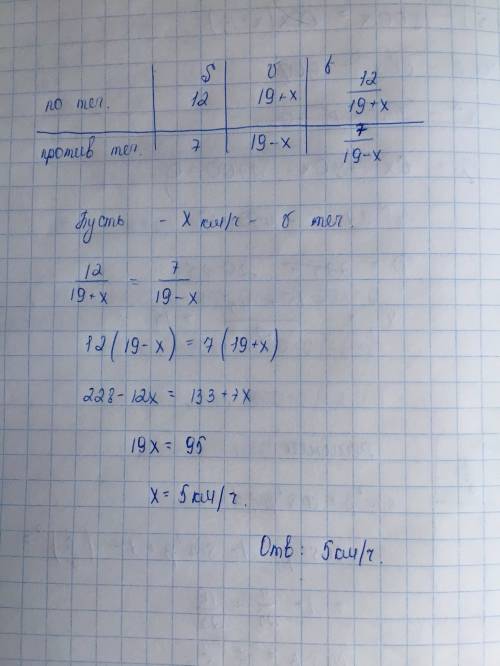 S v t
по теч. 12 19+x 12/19+x
против теч. 7 19-x 7/19-x
Пусть - x км/ч - v теч.
12/19+x = 7/19-x
12(19-x) = 7(19+x)
228-12x = 133+7x
19x = 95
x = 5 км/ч.
Отв: 5 км/ч.